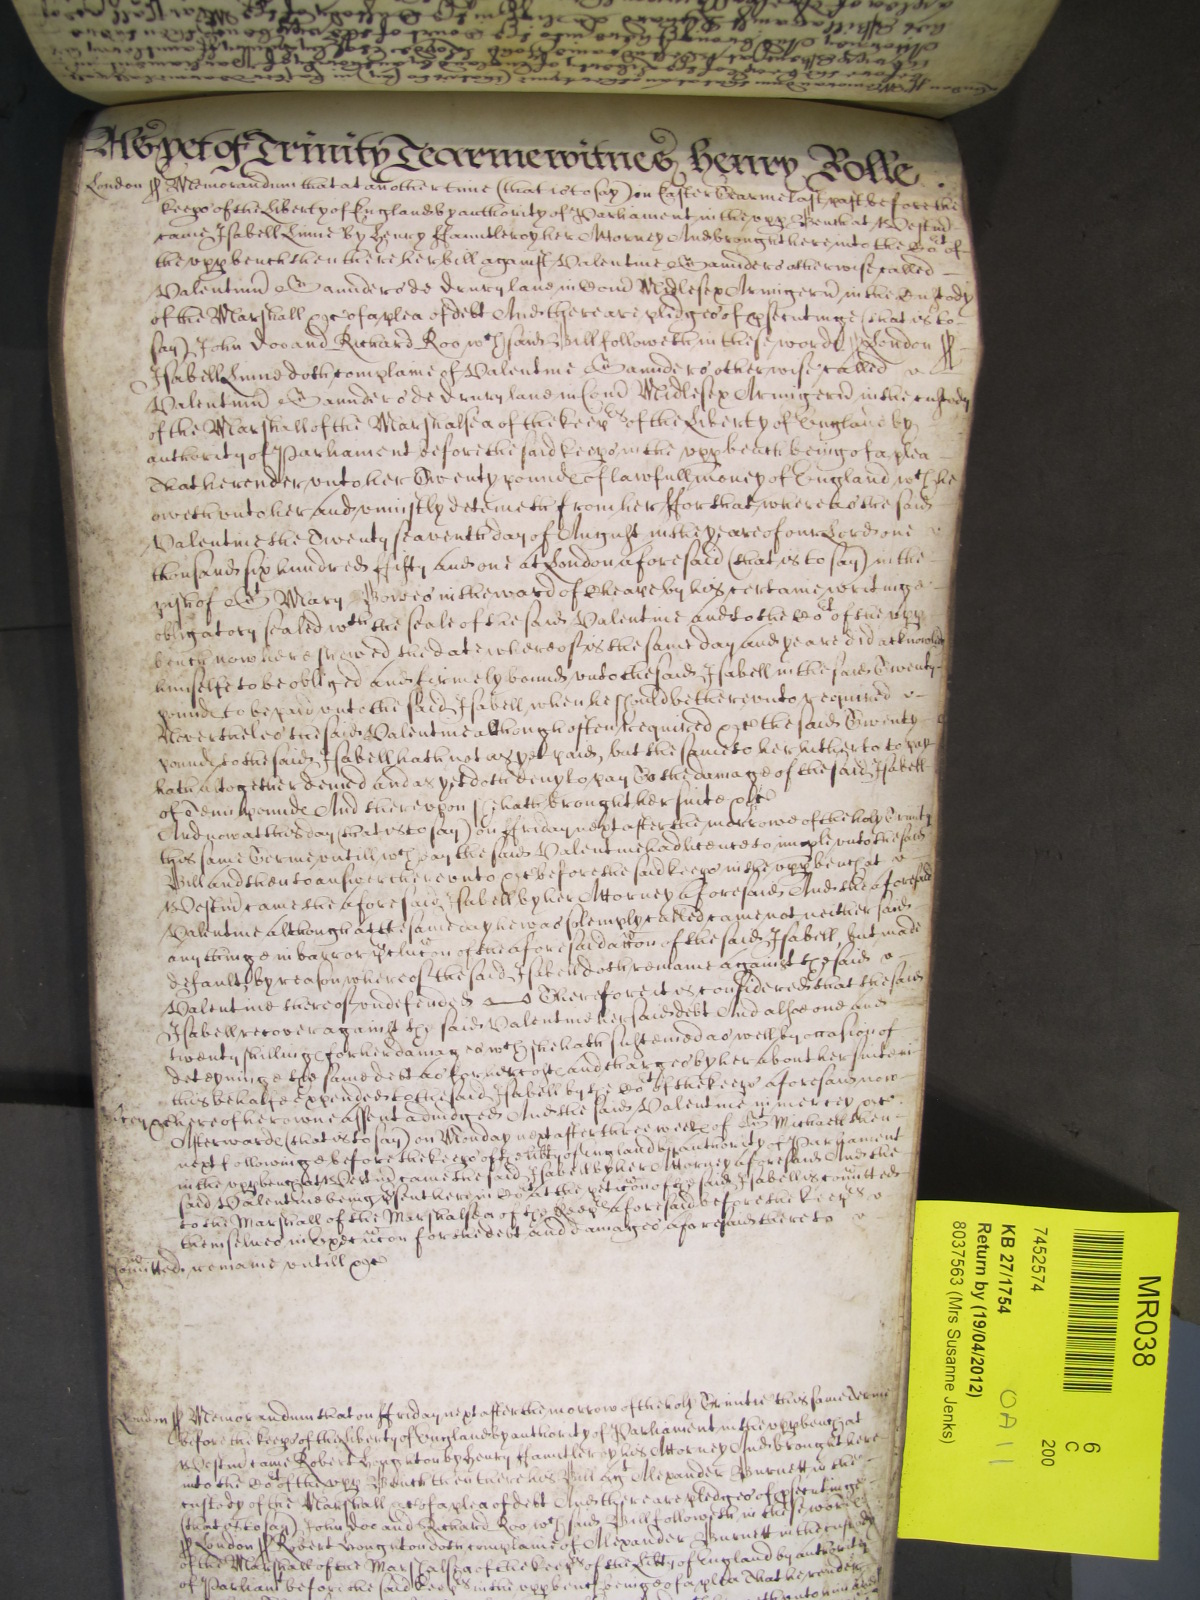 As yet of Trinity Tearme witnes Henry Rolle
London ss Memorandum that at another time (that is to say) in Easter Tearme last past before the
keeps of the Liberty of England by authority of Parliament in the upp Bench at Westmr
came Isabell Linne by Henry Fauntleroy her Attorney And brought here into the Cot of
the upp bench then there her bill against Valentine Saunders otherwise called
Valentinu Saunders de drury land in Com Midlesex Armigeru in the Custody
of the Marshall &c of a plea of debt And there are pledges of psecutinge (that is to
say) John Doo and Richard Roo wch said Bill followeth in these words ss London ss
Isabell Linne doth complaine of Valentine Saunders otherwise called
Valentinu Saunders de Drury land in Com Midlesex Armigeru in the custody
of the Marshall of the Marshalsea of the keeps of the Liberty of England by
authority of Parliament before the said keeps in the upp bench being of a plea
that he render unto her Twenty pounds of lawfull money of England wch he
oweth unto her and uniustly deteineth from her ffor that whereas the said
Valentine the Twenty seaventh day of August in the yeare of our Lord one
thousand six hundred ffifty and one at London aforesaid (that is to say) in the
pish of St Mary Bowes in the ward of Cheape by his certaine writinge
obligatory sealed wth the seale of the said Valentine and to the Cot of the upp
bench now here shewed the date whereof is the same day and yeare did acknowledg
himselfe to be obliged and firmely bound unto the said Isabell in the said Twenty
pounds to be paid unto the said Isabell when he should be thereunto required
Neverthelesse the said Valentine although often required &c the said Twenty
pounds to the said Isabell hath not as yet paid, but the same to her hitherto to pay
hath altogether denied and as yet doth deny to pay To the damage of the said Isabell
of Tenn pounds And thereupon she hath brought her suite &c
And now at this day (that is to say) on ffriday next after the morrowe of the holy Trinity
this same Terme untill wch day the said Valentine had licence to imple unto the said
Bill and then to answer thereunto &c before the said keeps in the upp bench at
Westmr came the aforesaid Isabell by her Attorney aforesaid And the aforesaid
Valentine although att the same day he was solemply called came not neither said
any thinge in barr or pclucon of the aforesaid accon of the said Isabell, but made
default, by reason whereof the said Isabell doth remaine against the said
Valentine thereof undefended Therefore it is considered that the said
Isabell recover against the said Valentine her said debt And alsoe one and
twenty shillings for her damages wch she hath susteined as well by occasion of
deteyninge the same debt as for her costs and charges by her about her suite in
this behalfe expended to the said Isabell by the Cot of the keeps aforesaid now
here of her owne assent adiudged And the said Valentine in mercy &c
Afterwards (that is to say) on Monday next after three weeks of St Michaell then
next followinge before the keeps of the Libty of England by authority of Parliament
in the upp bench at Westmr came the said Isabell by her Attorney aforesaid And the
said Valentine being psent here in Cot at the peticon of the said Isabell is comitted
to the Marshall of the Marshalsea of the keeps aforesaid before the keeps
themselves in Execucon for the debt and damages aforesaid there to
Comitted remaine untill &c
London ss Memorandum that on ffriday next after the morrow of the holy Trinitie this same Terme
before the keeps of the Liberty of England by authority of Parliament in the upp bench at
Westmr came Robert Houghton by Henry Fauntleroy his Attorney And brought here
into the Cot of the upp Bench then there his Bill agt Alexander Burnett in the
custody of the Marshall &c of a plea of debt And there are pledges of psecutinge
(that is to say) John Doo and Richard Roo wch said Bill followeth in these words
ss London ss Robert Houghton doth complaine of Alexander Burnett in the custody
of the Marshall of the Marshalsea of the keeps of the Libty of England by authority
of Parliamt before the said keeps in the upp bench being of a plea that he render
MR038
6
C
200
7452574
KB 27/1754
Return by (19/04/2012)
8037563 (Mrs Susanne Jenks)